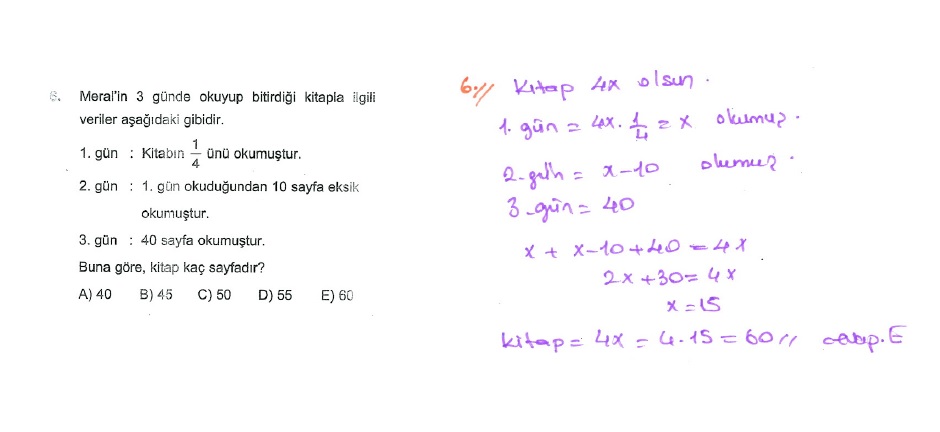 6. Meral'in 3 günde okuyup bitirdiği kitapla ilgili
veriler aşağıdaki gibidir.
1. gün : Kitabın 1/4 ünü okumuştur.
2. gün : 1. gün okuduğundan 10 sayfa eksik
okumuştur.
3. gün : 40 sayfa okumuştur.
Buna göre, kitap kaç sayfadır?
A) 40 B) 45 C) 50 D) 55 E) 60
6.// Kitap 4x olsun.
1. gün = 4x. 1/4 = x okumuş.
2. gün = x-10 okumuş.
3. gün = 40
x + x-10+40 = 4x
2x+30= 4x
x = 15
kitap = 4x = 4.15 = 60 // cevap. E